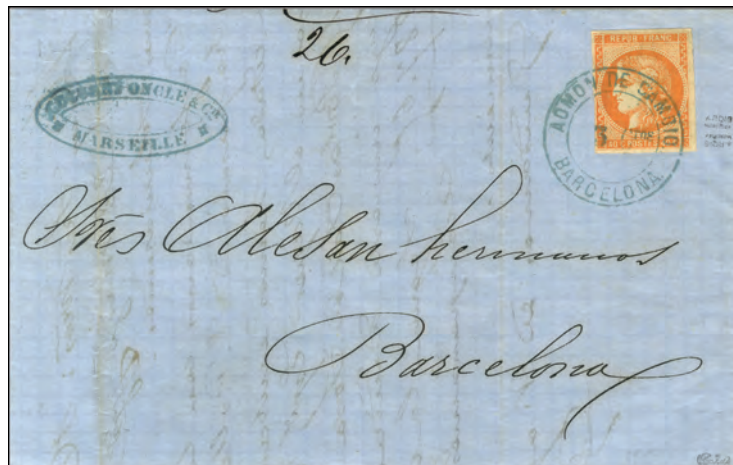 26.
ONCLE & Cie
MARSEILLE
REPUB. FRANC.
40 POSTES
ADMON DE CAMBIO
BARCELONA
Sres Alesan hermanos
Barcelona